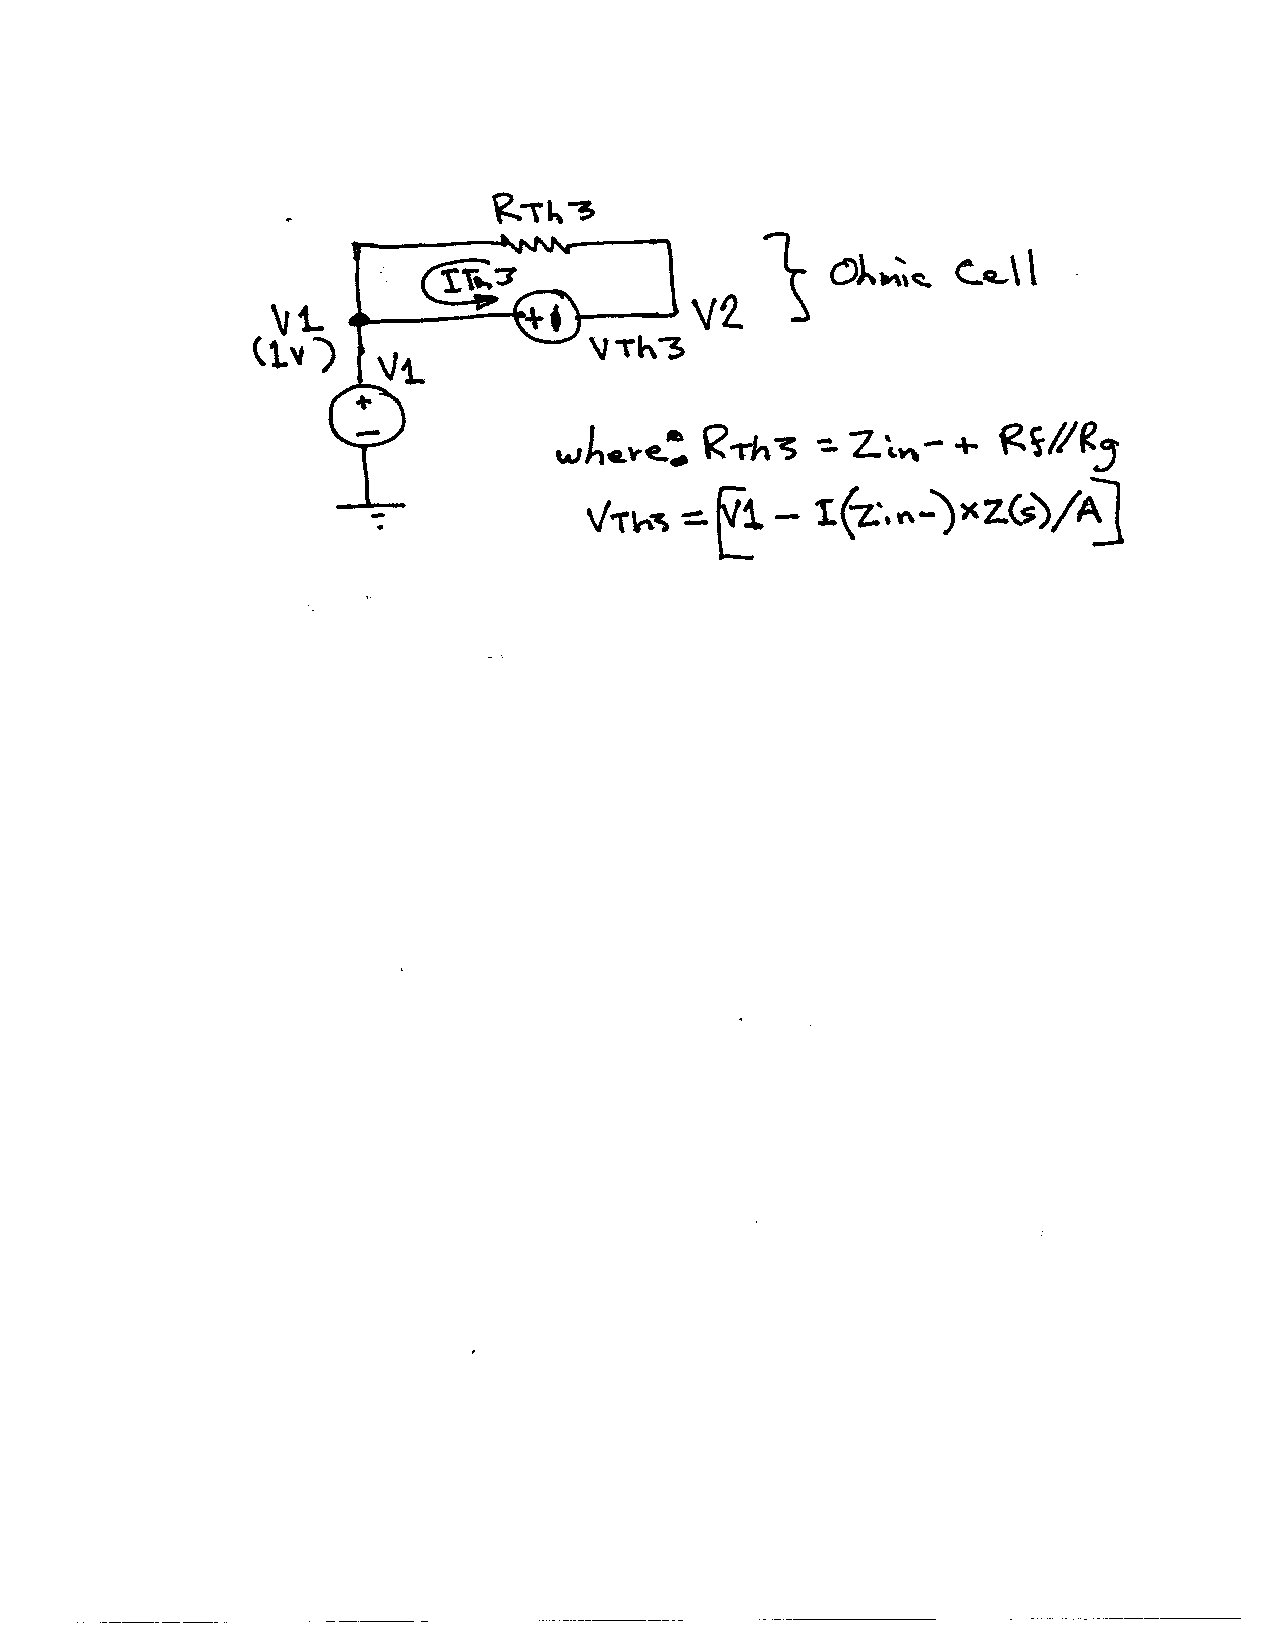 RTh3
ITh3
} Ohmic Cell
V1
(1v)
+ -
V2
VTh3
V1
+
-
where: RTh3 = Zin- + Rf//Rg
VTh3 = [V1 - I(Zin-)×Z(s)/A]